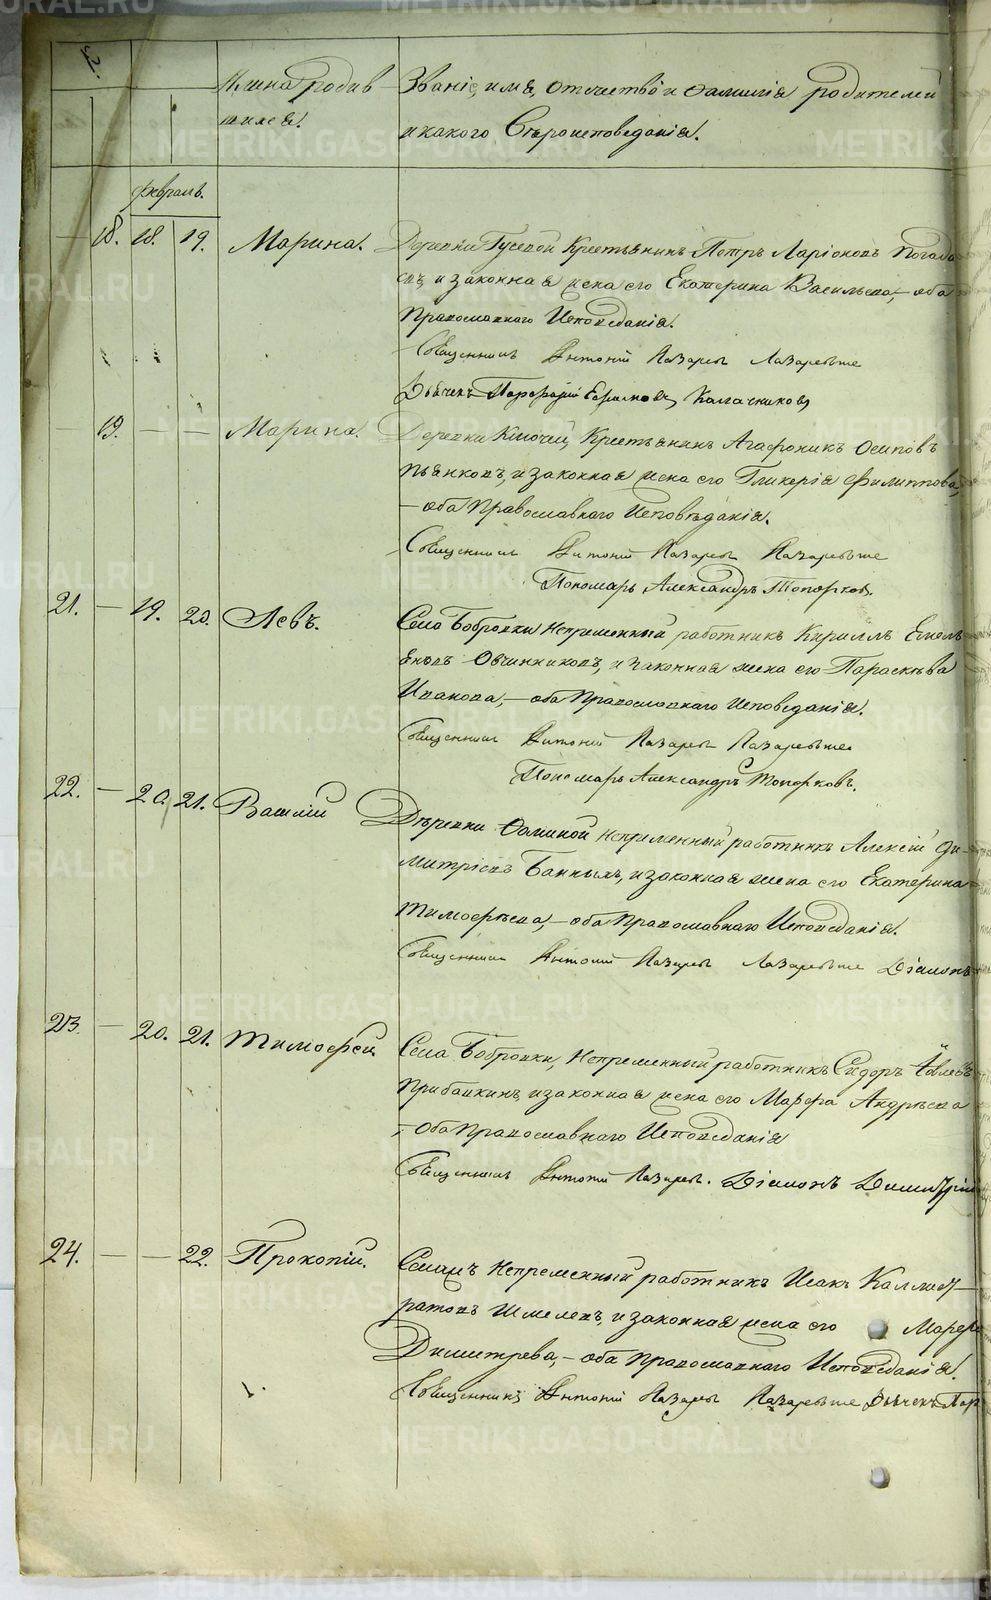 Имена родив
шихся.
Званіе, имя, отчество и фамилія родителей
и какого Вѣроисповеданія.
Февраль.
18. 18. 19. Марина. Деревни Гусевой Крестьянинъ Петръ Ларіоновъ
и законная жена его Екатерина Васильева, — оба
Православнаго Исповеданія.
Священникъ Антоній Лазаревъ
Дьячекъ Порфирій Калачниковъ
19. — — Марина. Деревни Ключей, Крестьянинъ Агафоникъ Осиповъ
Пьянковъ, и законная жена его Гликерія Филиппова,
— оба Православнаго Исповѣданія.
Священникъ Антоній Лазаревъ
Пономарь Александръ Топорковъ.
21. — 19. 20. Левъ. Села Бобровки Непременный работникъ Кириллъ Емель
яновъ Овчинниковъ, и законная жена его Параскѣва
Иванова, — оба Православнаго Исповеданія.
Священникъ Антоній Лазаревъ
Пономарь Александръ Топорковъ.
22. — 20. 21. Василій Деревни Фоминой Непременный работникъ Алексій Ди-
митріевъ Банныхъ, и законная жена его Екатерина
Тимофѣева, — оба Православнаго Исповеданія.
Священникъ Антоній Лазаревъ Діаконъ
23. — 20. 21. Тимофей Села Бобровки, Непременный работникъ Сидоръ
и законная жена его Марфа Андрѣева
— оба Православнаго Исповеданія
Священникъ Антоній Лазаревъ. Діаконъ Димитрій
24. — — 22. Прокопій. Непременный работникъ Исакъ Каллист-
ратовъ Шмелевъ, и законная жена его Марфа
Димитрева, — оба Православнаго Исповеданія.
Священникъ Антоній Лазаревъ Дьячекъ Пор
METRIKI.GASO-URAL.RU